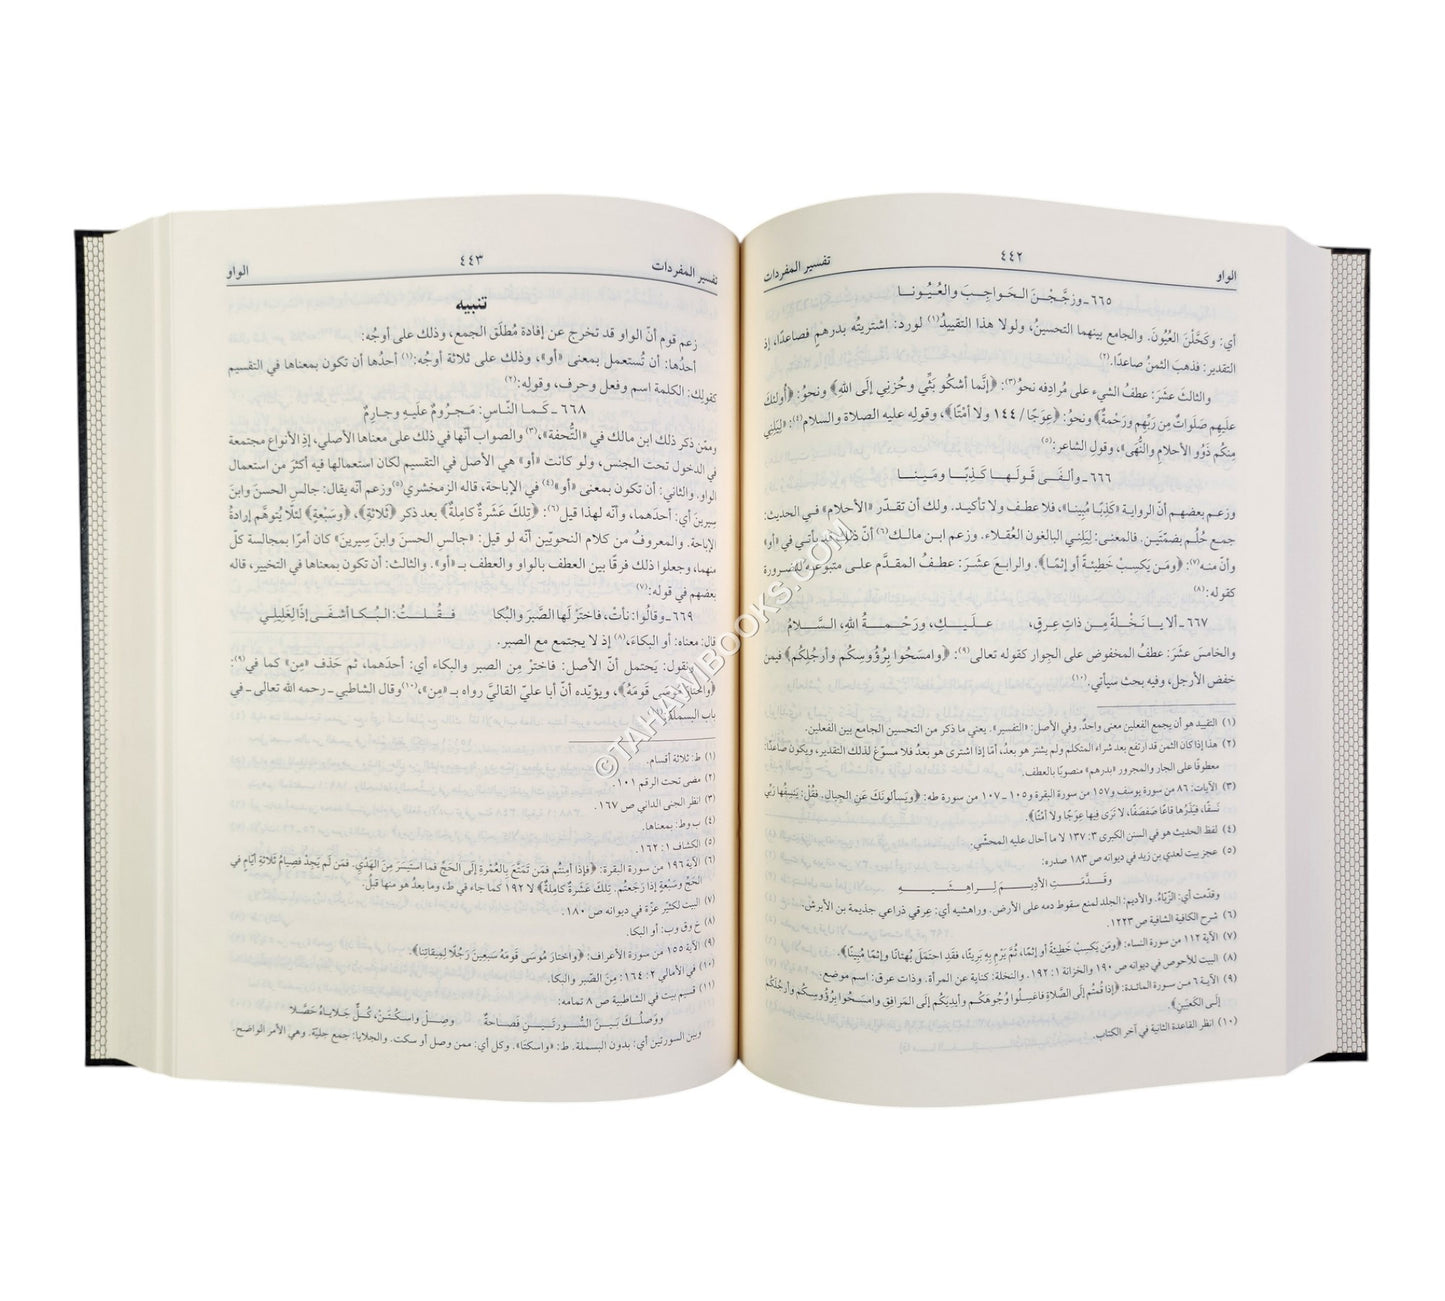 الواو ٤٤٢ تفسير المفردات
٦٦٥ـ وزَجَّجْنَ الحَواجِبَ والعُيُونا
أي: وكَحَّلْنَ العُيُونَ. والجامع بينهما التحسينُ، ولولا هذا التقييدُ(١) لورد: اشتريتُه بدرهمٍ فصاعدًا، إذ
التقدير: فذهبَ الثمنُ صاعدًا.(٢)
والثالثَ عشَرَ: عطفُ الشيء على مُرادِفه نحوُ(٣): ﴿إنَّما أشكُو بَثِّي وحُزنِي إلَى اللهِ﴾ ونحوُ: ﴿أُولئكَ
علَيهِم صَلَواتٌ مِن رَبِّهِم ورَحْمةٌ﴾ ونحوُ: ﴿عِوَجًا/ ١٤٤ ولا أمْتًا﴾، وقولِه عليه الصلاة والسلام(٤): «لِيَلِنِي
مِنكُم ذَوُو الأحلامِ والنُّهَى»، وقولِ الشاعر:(٥)
٦٦٦ـ وألفَى قَولَها كَذِبًا ومَينا
وزعم بعضهم أنّ الرواية «كَذِبًا مُبِينا»، فلا عطف ولا تأكيد. ولك أن تقدّر «الأحلام» في الحديث:
جمع حُلُم بضمّتين. فالمعنى: لِيَلِني البالغون العُقلاء. وزعم ابن مالك(٦) أنّ ذلك قد يأتي في «أو»
وأنّ منه(٧): ﴿ومَن يَكسِبْ خَطِيئةً أو إثْمًا﴾. والرابعَ عشَرَ: عطفُ المقدَّم على متبوعه للضرورة
كقوله:(٨)
٦٦٧ـ ألا يا نَخْلةً مِن ذاتِ عِرقٍ، علَيكِ، ورَحْمةُ اللهِ، السَّلامُ
والخامسَ عشَرَ: عطفُ المخفوض على الجِوار كقوله تعالى(٩): ﴿وامسَحُوا بِرُؤُوسِكُم وأرجُلِكُم﴾ فيمن
خفض الأرجل، وفيه بحث سيأتي.(١٠)
(١) التقييد هو أن يجمع الفعلين معنى واحدٌ. وفي الأصل: «التفسير». يعني ما ذكر من التحسين الجامع بين الفعلين.
(٢) هذا إذا كان الثمن قد ارتفع بعد شراء المتكلم ولم يشتر هو بعدُ، أمّا إذا اشترى هو بعدُ فلا مسوّغ لذلك التقدير، ويكون صاعدًا:
معطوفًا على الجار والمجرور «بدرهم» منصوبًا بالعطف.
(٣) الآيات: ٨٦ من سورة يوسف و١٥٧ من سورة البقرة و١٠٥ ـ ١٠٧ من سورة طه: ﴿ويَسألُونَكَ عَنِ الجِبالِ. فقُلْ: يَنسِفُها رَبِّي
نَسفًا، فيَذَرُها قاعًا صَفصَفًا، لا تَرَى فِيها عِوَجًا ولا أمْتًا﴾.
(٤) لفظ الحديث هو في السنن الكبرى ٣: ١٣٧ لا ما أحال عليه المحشّي.
(٥) عجز بيت لعدي بن زيد في ديوانه ص ١٨٣ صدره:
وقَدَّمَتِ الأديمَ لِراهِشَيهِ
وقدّمت أي: الزّبّاءُ. والأديم: الجلد لمنع سقوط دمه على الأرض. وراهشيه أي: عِرقي ذراعي جذيمة بن الأبرش.
(٦) شرح الكافية الشافية ص ١٢٢٣.
(٧) الآية ١١٢ من سورة النساء: ﴿ومَن يَكسِبْ خَطِيئةً أو إثمًا، ثُمَّ يَرْمِ بِهِ بَرِيئًا، فقَدِ احتَمَلَ بُهتانًا وإثمًا مُبِينًا﴾.
(٨) البيت للأحوص في ديوانه ص ١٩٠ والخزانة ١: ١٩٢. والنخلة: كناية عن المرأة. وذات عرق: اسم موضع.
(٩) الآية ٦ من سورة المائدة: ﴿إذا قُمتُم إلَى الصَّلاةِ فاغسِلُوا وُجُوهَكُم وأيدِيَكُم إلَى المَرافِقِ وامسَحُوا بِرُؤُوسِكُم وأرجُلَكُم
إلَى الكَعبَينِ﴾.
(١٠) انظر القاعدة الثانية في آخر الكتاب.
تفسير المفردات ٤٤٣ الواو
تنبيه
زعم قوم أنّ الواو قد تخرج عن إفادة مُطلَق الجمع، وذلك على أوجُه:
أحدُها: أن تُستعمل بمعنى «أو»، وذلك على ثلاثة أوجُه:(١) أحدُها أن تكون بمعناها في التقسيم
كقولِك: الكلمة اسم وفعل وحرف، وقولِه:(٢)
٦٦٨ـ كَما النّاسِ: مَجرُومٌ علَيهِ وجارِمُ
وممّن ذكر ذلك ابن مالك في «التُّحفة»،(٣) والصواب أنّها في ذلك على معناها الأصلي، إذِ الأنواع مجتمعة
في الدخول تحت الجنس، ولو كانت «أو» هي الأصل في التقسيم لكان استعمالها فيه أكثرَ من استعمال
الواو. والثاني: أن تكون بمعنى «أو»(٤) في الإباحة، قاله الزمخشري(٥) وزعم أنّه يقال: جالسِ الحسنَ وابنَ
سِيرينَ أي: أحدَهما، وأنّه لهذا قيل(٦): ﴿تِلكَ عَشَرةٌ كامِلةٌ﴾ بعد ذكر ﴿ثَلاثةِ﴾، ﴿وسَبْعةٍ﴾ لئلّا يُتوهَّم إرادةُ
الإباحة. والمعروفُ من كلام النحويّين أنّه لو قيل: «جالسِ الحسنَ وابنَ سِيرين» كان أمرًا بمجالسة كلٍّ
منهما، وجعلوا ذلك فرقًا بين العطف بالواو والعطف بـ «أو». والثالث: أن تكون بمعناها في التخيير، قاله
بعضهم في قوله:(٧)
٦٦٩ـ وقالُوا: نأتْ، فاختَرْ لَها الصَّبرَ والبُكا فقُلتُ: البُكا أشفَى إذًا لِغَلِيلِي
قال: معناه: أو البكاءَ،(٨) إذ لا يجتمع مع الصبر.
ونقول: يَحتمل أنّ الأصل: فاخترْ مِنَ الصبر والبكاء أي: أحدَهما، ثم حَذف «مِن» كما في(٩):
﴿واختارَ مُوسَى قَومَهُ﴾، ويؤيّده أنّ أبا عليّ القاليَّ رواه بـ «مِن»،(١٠) وقال الشاطبي ـ رحمه الله تعالى ـ في
باب البسملة:(١١)
(١) ط: ثلاثة أقسام.
(٢) مضى تحت الرقم ١٠١.
(٣) انظر الجنى الداني ص ١٦٧.
(٤) ب وط: بمعناها.
(٥) الكشاف ١: ١٦٢.
(٦) الآية ١٩٦ من سورة البقرة: ﴿فإذا أمِنتُم فمَن تَمَتَّعَ بِالعُمْرةِ إلَى الحَجِّ فما استَيسَرَ مِنَ الهَدْيِ. فمَن لَم يَجِدْ فصِيامُ ثَلاثةِ أيّامٍ في
الحَجِّ وسَبْعةٍ إذا رَجَعتُم. تِلكَ عَشَرةٌ كامِلةٌ﴾ لا ١٩٢ كما جاء في ط، وما بعدُ هو منها قبلُ.
(٧) البيت لكثيّر عزّة في ديوانه ص ١٨٠.
(٨) خ وق وب: أو البكا.
(٩) الآية ١٥٥ من سورة الأعراف: ﴿واختارَ مُوسَى قَومَهُ سَبعِينَ رَجُلًا لِمِيقاتِنا﴾.
(١٠) في الأمالي ٢: ١٦٤: مِنَ الصّبر والبكا.
(١١) قسيم بيت في الشاطبية ص ٨ تمامه:
ووَصلُكَ بَينَ السُّورتَينِ فَصاحةٌ وصِلْ واسكُتَنْ، كُلٌّ جَلاياهُ حَصَّلا
وبين السورتين أي: بدون البسملة. ط: «واسكتا». وكل أي: ممن وصل أو سكت. والجلايا: جمع جليّة. وهي الأمر الواضح.
©TAHAWIBOOKS.COM